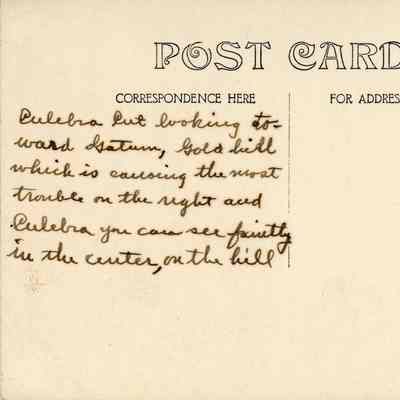 POST CARD
CORRESPONDENCE HERE
FOR ADDRES
Culebra Cut looking to-
ward Gatum, Gold hill
which is causing the most
trouble on the right and
Culebra you can see faintly
in the center, on the hill